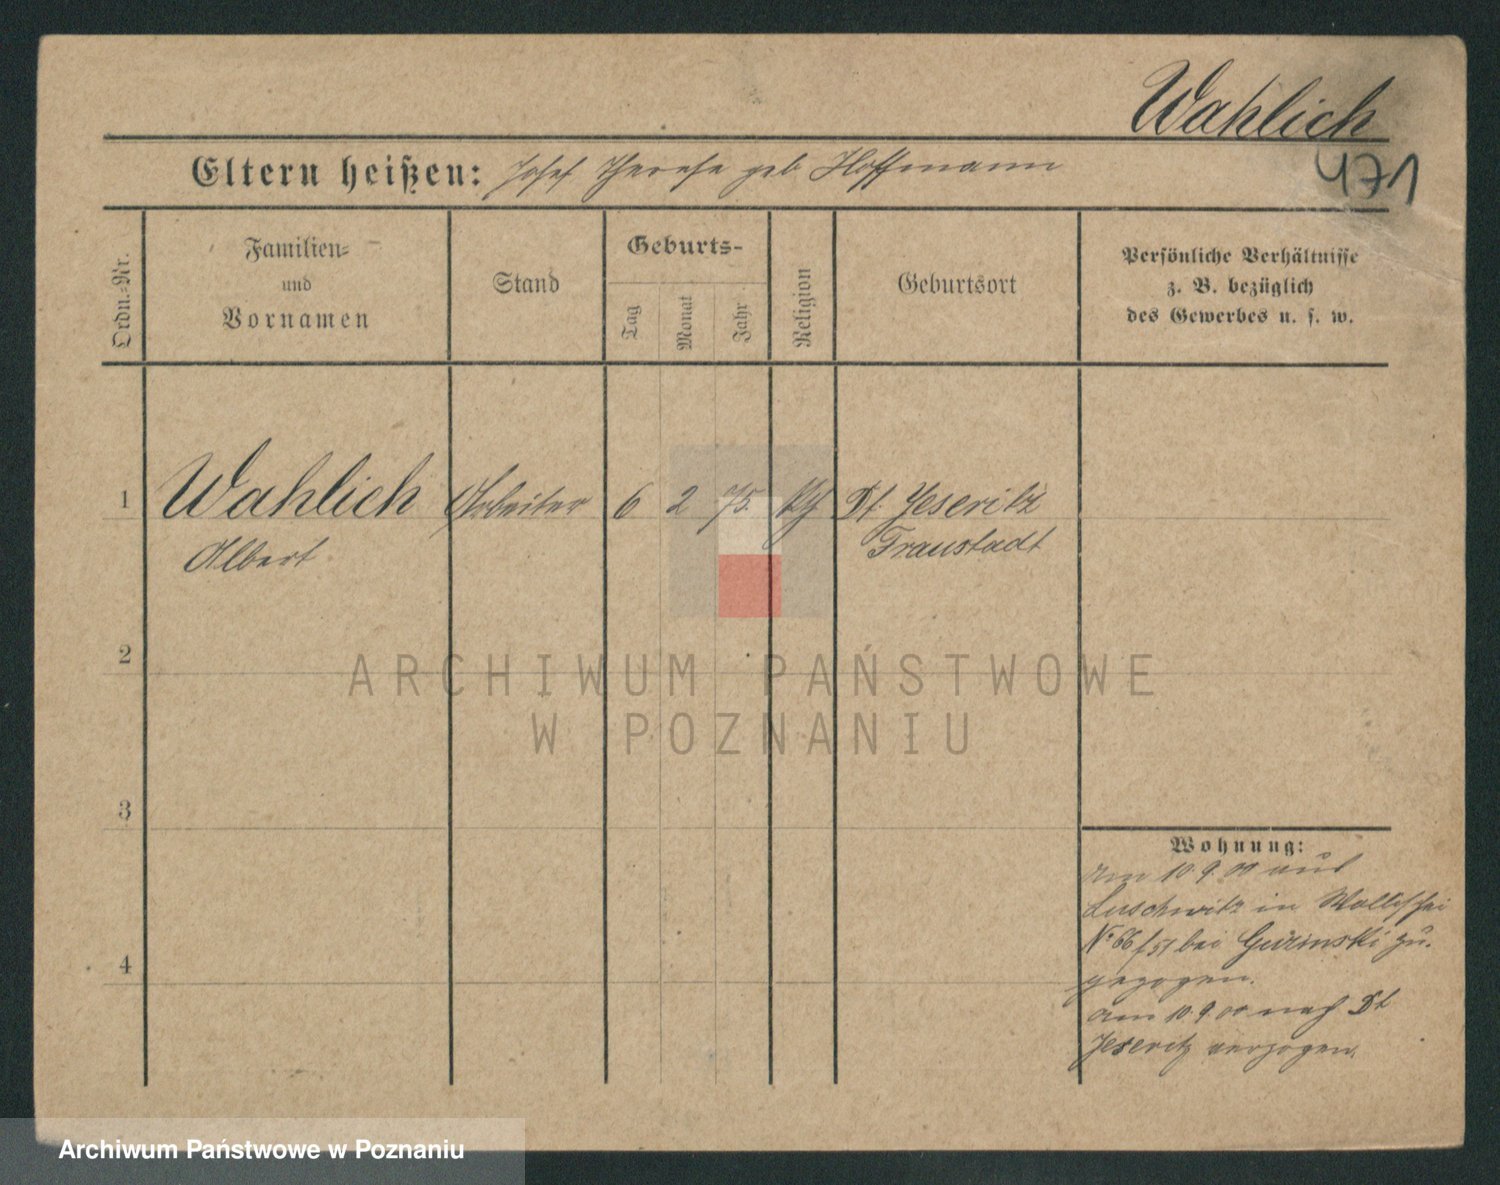 Wahlich
471
Eltern heißen: Josef Therese geb. Hoffmann
Ordn.-Nr.
Familien-
und
Vornamen
Stand
Geburts-
Tag
Monat
Jahr
Religion
Geburtsort
Persönliche Verhältnisse
z. B. bezüglich
des Gewerbes u. s. w.
1 Wahlich Arbeiter 6 2 75. Dt. Jeseritz
Albert Fraustadt
2
ARCHIWUM PAŃSTWOWE
W POZNANIU
3
4
Wohnung:
am 10.9. aus
Luschwitz in
No 66/51 bei zu-
gezogen.
am 10.9.00 nach Dt
Jeseritz verzogen.
Archiwum Państwowe w Poznaniu